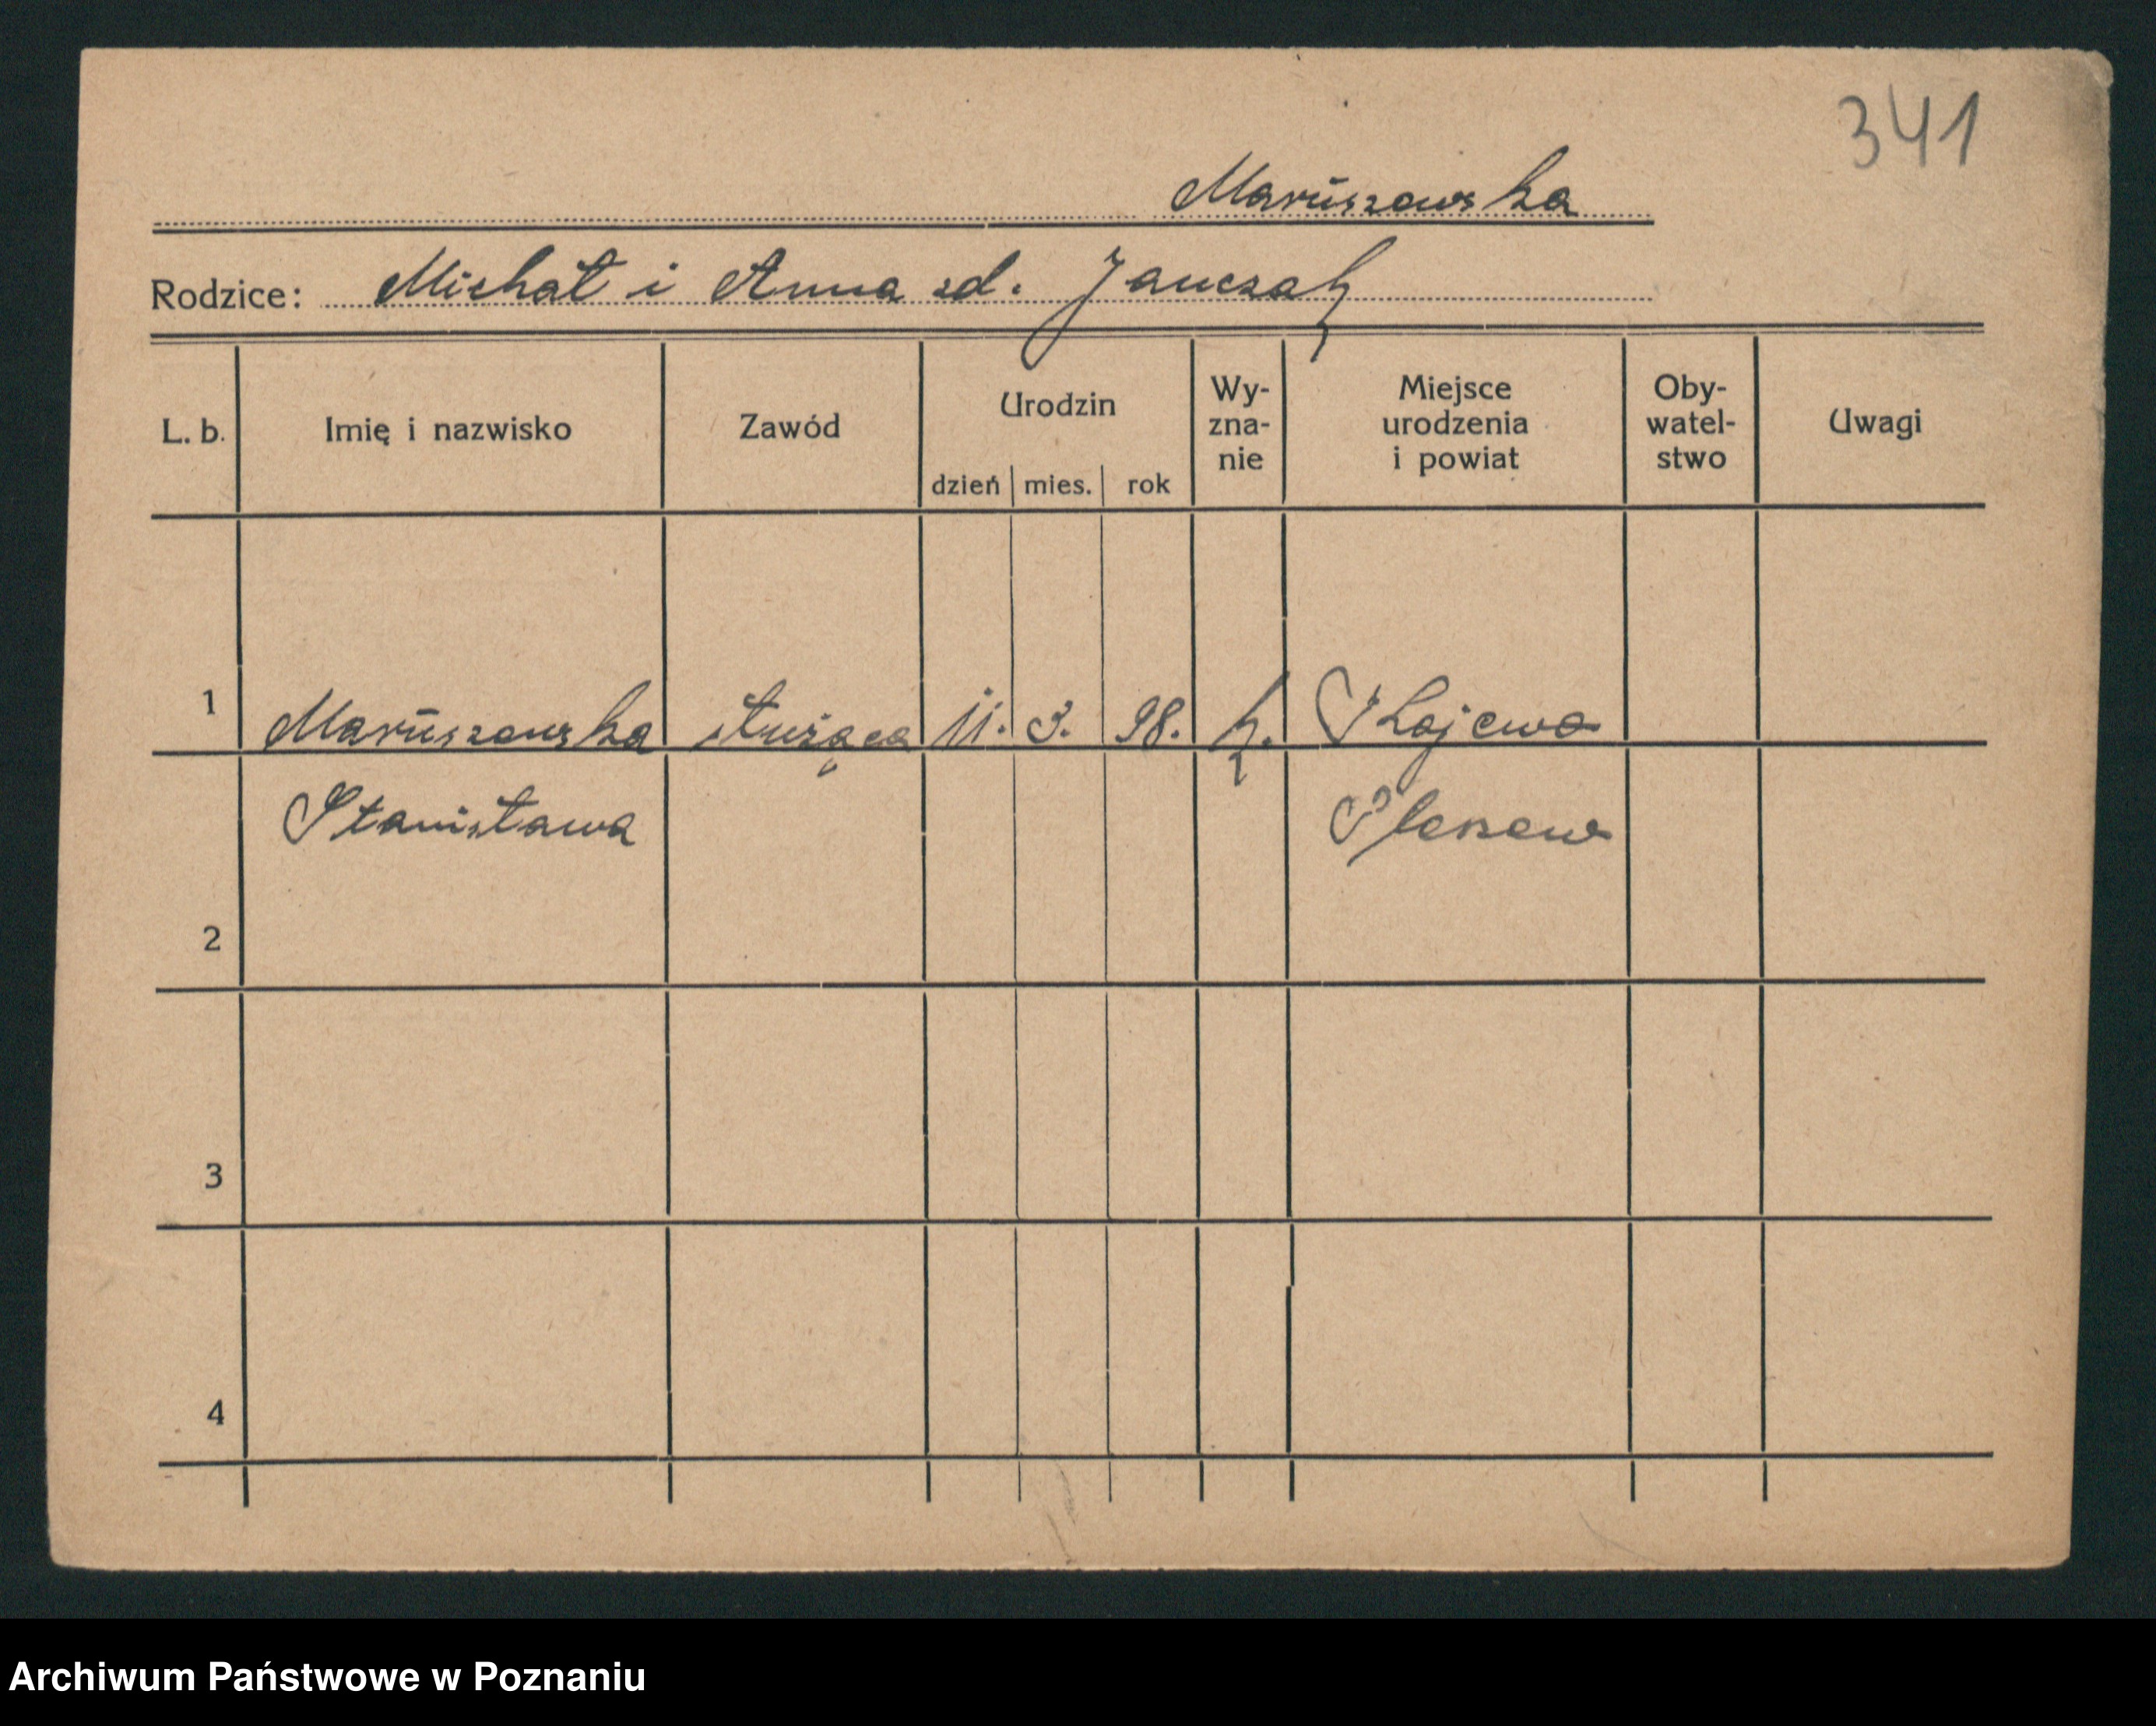 341
Maruszewska
Rodzice: Michał i Anna zd. Janczak
L. b. Imię i nazwisko Zawód Urodzin dzień mies. rok Wy-zna-nie Miejsce urodzenia i powiat Oby-watel-stwo Uwagi
1 Maruszewska służąca 11. 3. 98. k.
Stanisława Pleszew
2
3
4
Archiwum Państwowe w Poznaniu